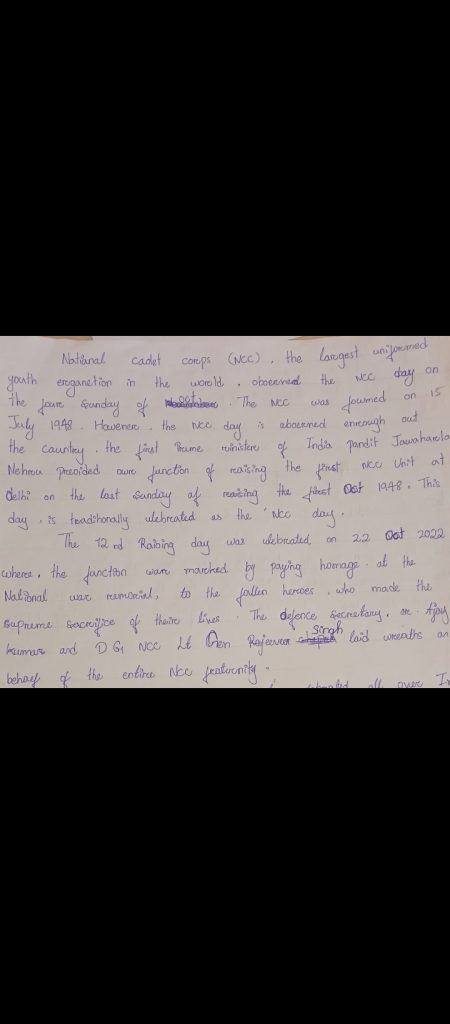 National cadet corps (NCC), the largest uniformed
youth eroganetion in the world, observed the NCC day on
The four Sunday of oct. The NCC was fowmed on 15
July 1948. However, the NCC day is abserned enrough out
the Cauntry, the first Prume ministere of India Pandit Jawaharla
Nehrou preovided owre function of reaising the first NCC Unit at
delhi on the last Sunday of reaising the first Oct 1948. This
day, is tradihonally celebreated as the NCC day.
The 12 nd Raising day was celebreated, on 22 Oct 2022
where, the function ware mareked by paying homage at the
National war memorial, to the fallen heroes, who made the
supreme sacrifice of their lives. The defence secretary, Ajay
kumar and D G NCC Lt Gen Rajeever Singh laid wreaths an
behalf of the entire NCC fraternity.
all over In